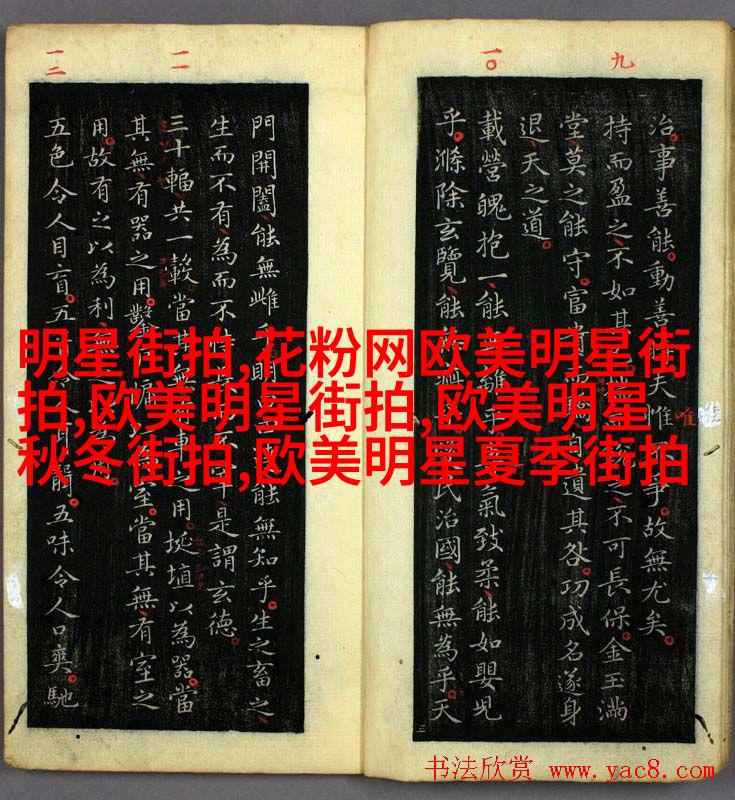 九
一〇
一一
一二
治。事善能。動善夫惟爭。故無尤矣。
持而盈之不如其之不可長保。金玉滿
堂莫之能守。富貴自遺其咎。功成名遂身
退天之道。
載營魄抱一能離乎氣致柔能如嬰兒
乎。滌除玄覽能民治國能無為乎。天
唯
門開闔能無雌乎明能無知乎。生之畜之
生而不有為而不恃是謂玄德。
三十輻共一轂當其無車之用。埏埴以為器當
其無有器之用。鑿室。當其無有室之
用。故有之以為利無
五色令人目盲。五聾。五味令人口爽。馳
明星街拍,花粉网欧美明星街
拍,欧美明星街拍,欧美明星
秋冬街拍,欧美明星夏季街拍
书法欣赏 www.yac8.com